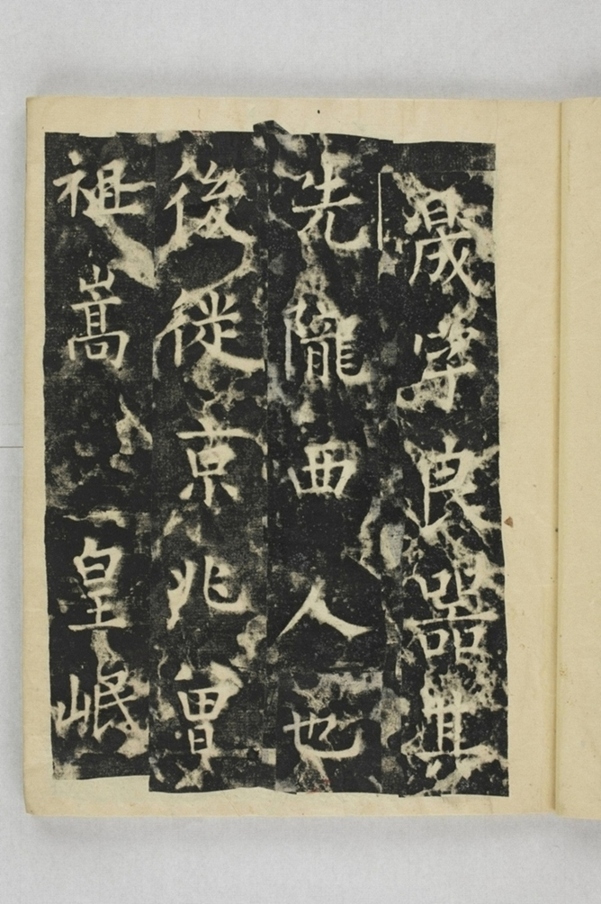 晟字良器其
先隴西人也
後徙京兆曾
祖嵩皇岷